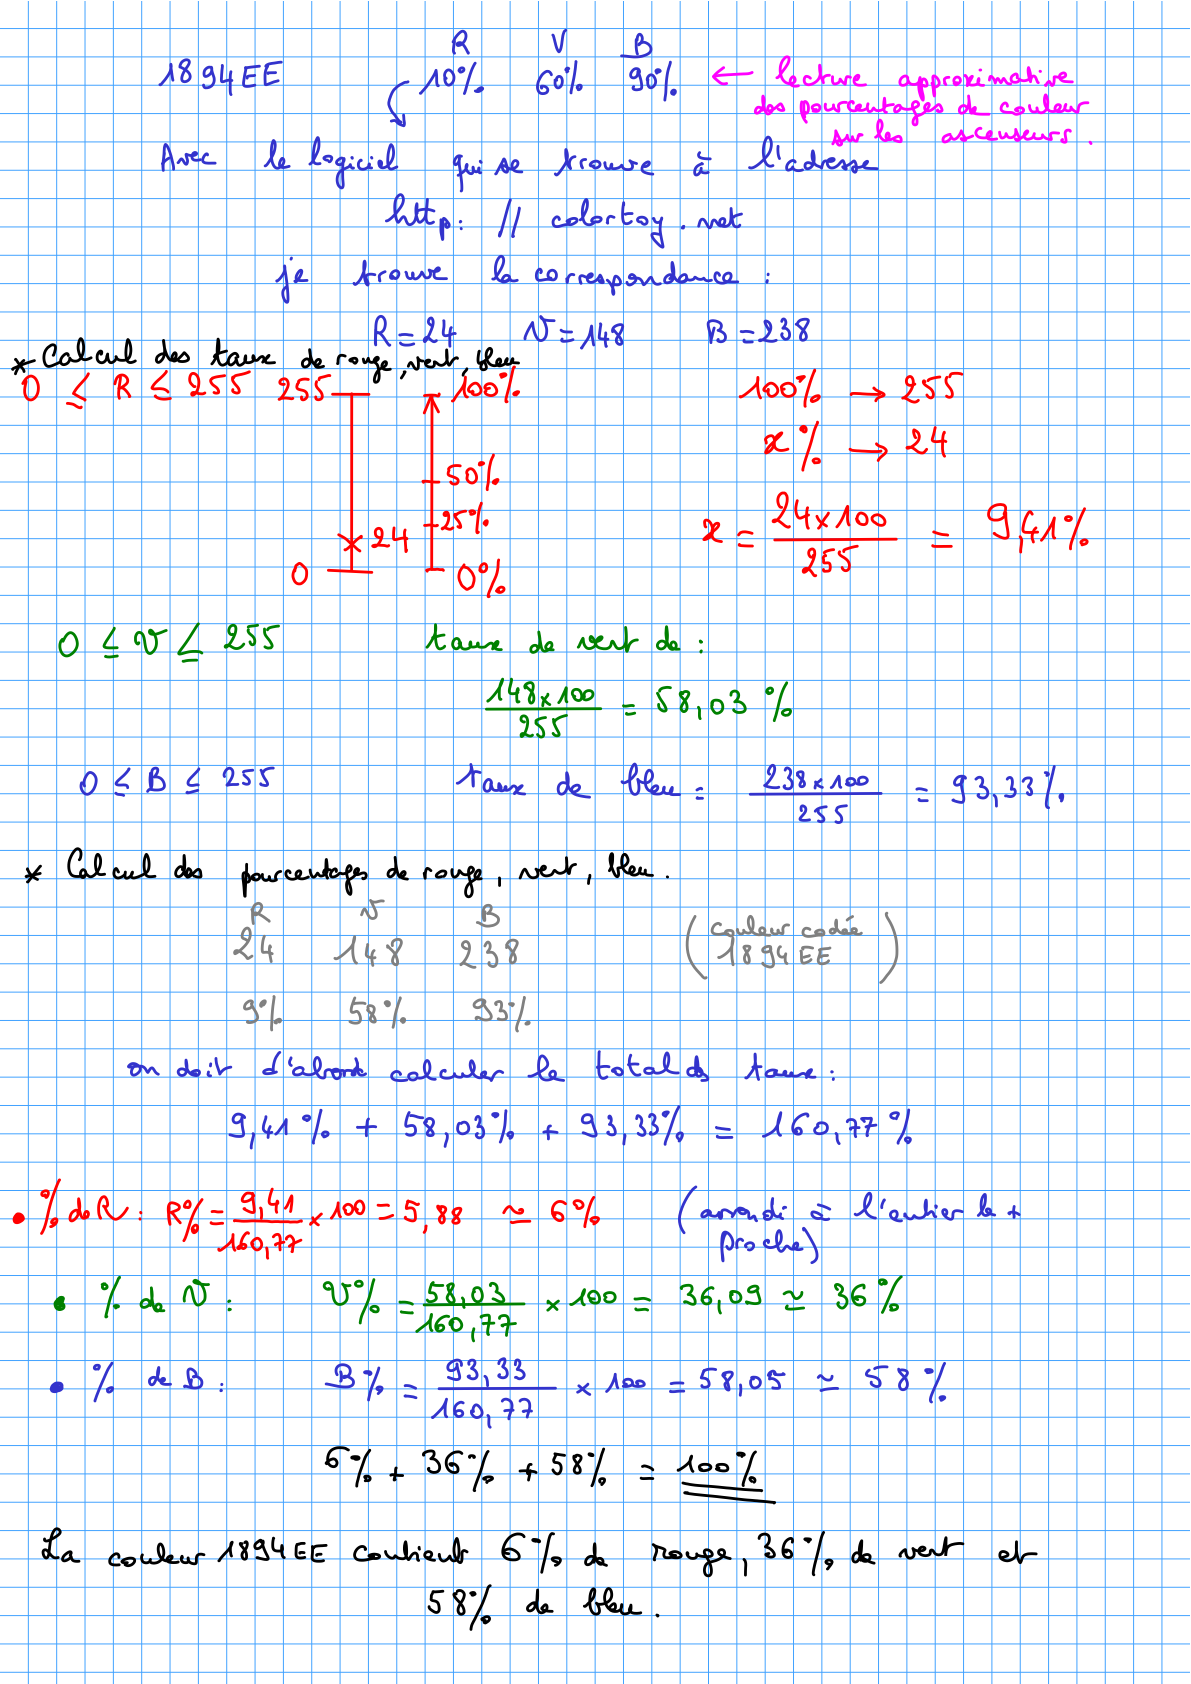 R V B
1894EE 10% 60% 90% ← lecture approximative
des pourcentages de couleur
sur les ascenseurs.
Avec le logiciel qui se trouve à l'adresse
http: // colortoy.net
je trouve la correspondance :
R = 24 V = 148 B = 238
* Calcul des taux de rouge, vert, bleu
0 ≤ R ≤ 255 255 100% 100% → 255
x% → 24
50%
25%
24
0 0%
x = 24×100 / 255 = 9,41%
0 ≤ V ≤ 255 taux de vert de :
148×100 / 255 = 58,03 %
0 ≤ B ≤ 255 taux de bleu = 238×100 / 255 = 93,33%
* Calcul des pourcentages de rouge, vert, bleu.
R V B
24 148 238 (couleur codée
1894EE)
9% 58% 93%
on doit d'abord calculer le total ds taux :
9,41% + 58,03% + 93,33% = 160,77%
• % de R : R% = 9,41 / 160,77 × 100 = 5,88 ≃ 6% (arrondi à l'entier le +
proche)
• % de V : V% = 58,03 / 160,77 × 100 = 36,09 ≃ 36%
• % de B : B% = 93,33 / 160,77 × 100 = 58,05 ≃ 58%
6% + 36% + 58% = 100%
La couleur 1894EE contient 6% de rouge, 36% de vert et
58% de bleu.